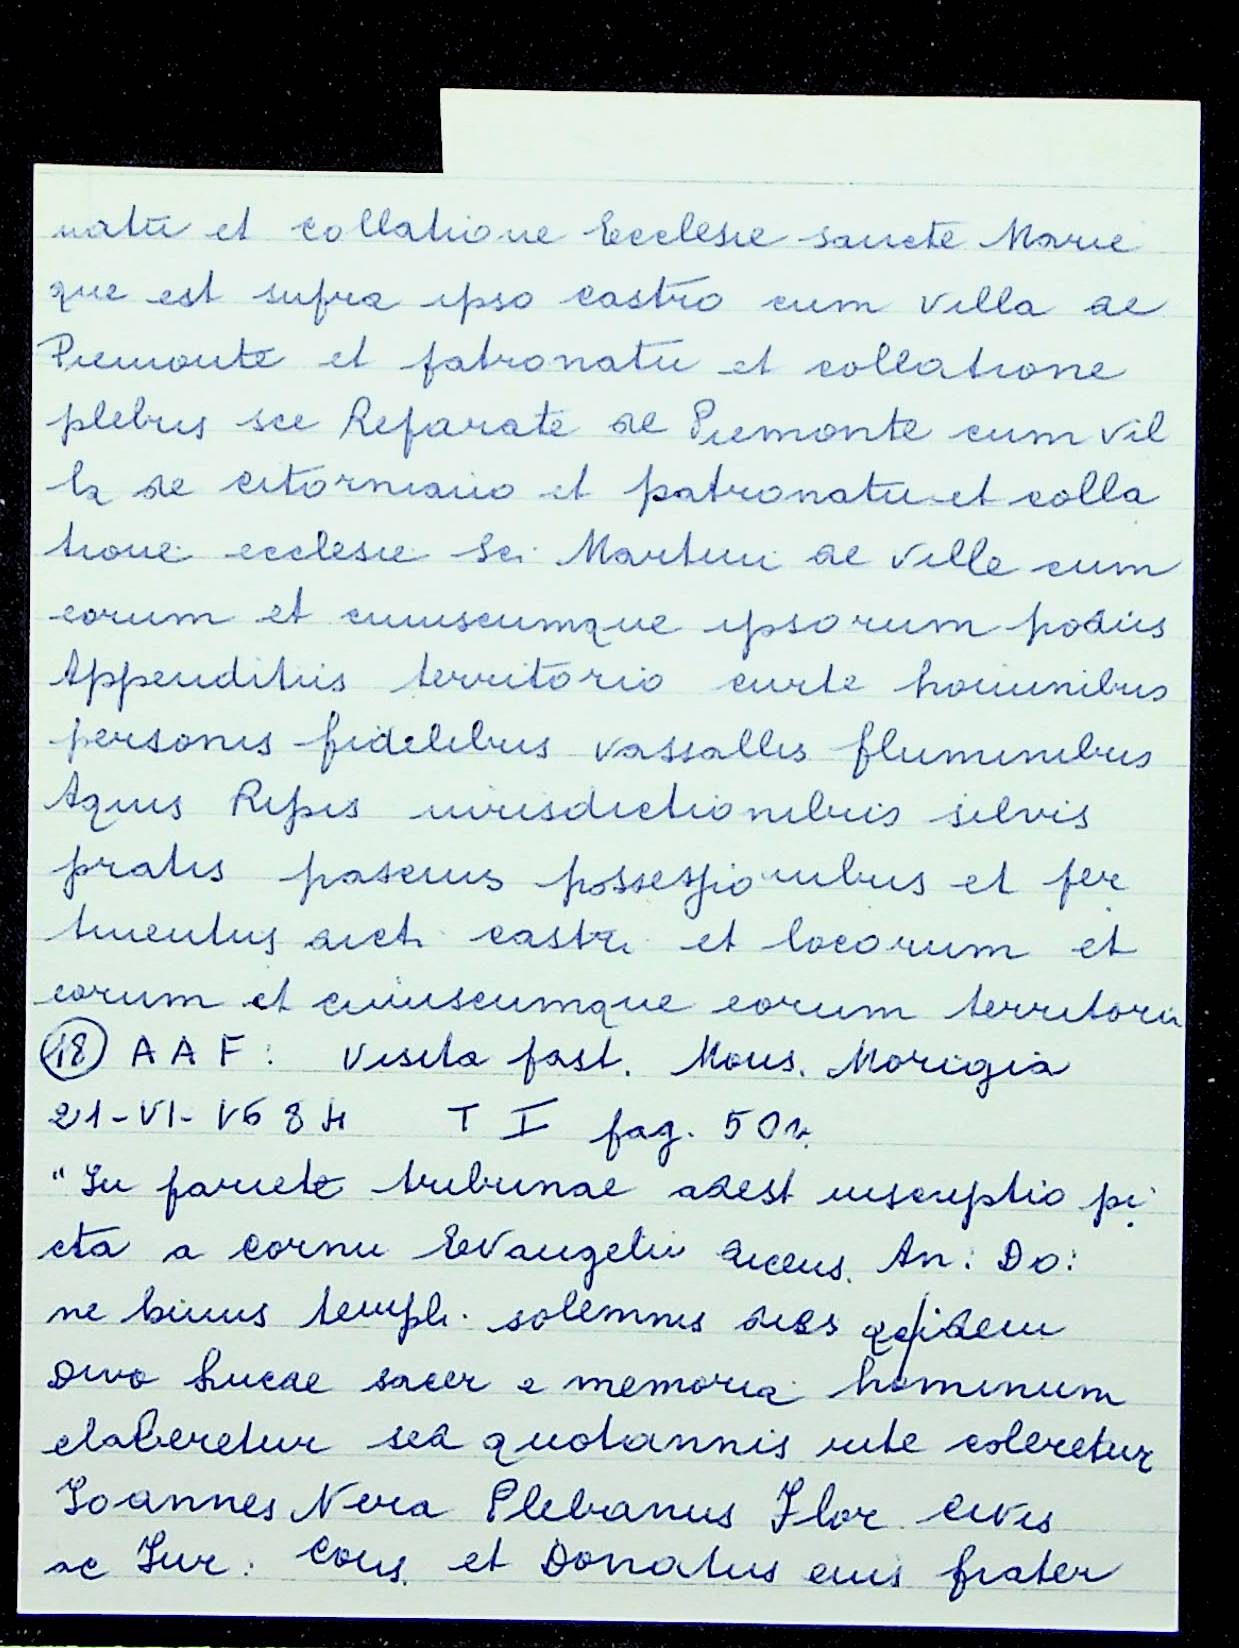 natu et collatione Ecclesie sancte Marie
que est supra ipso castro cum villa de
Piemonte et patronatu et collatione
plebis sce Reparate de Piemonte cum vil
la de citorniano et patronatu et colla
tione ecclesie Sci Martini de ville cum
eorum et cuiuscumque ipsorum podiis
Appenditiis territorio curte hominibus
personis fidelibus vassallis fluminibus
Aquis Ripis iurisdictionibus silvis
pratis pascuis possessionibus et per
tinentiis dicti castri et locorum et
eorum et cuiuscumque eorum territorii
(18) A A F: Visita past. Mons. Morigia
21-VI-1684 T I pag. 50v.
"In pariete tribunae adest inscriptio pi
cta a cornu Evangelii dicens. An: Do:
ne huius templi solemnis dies
Divo Lucae sacer e memoria hominum
elaberetur sed quotannis rite coleretur
Ioannes Nera Plebanus Flor. civis
ac Iur: Cons. et Donatus eius frater